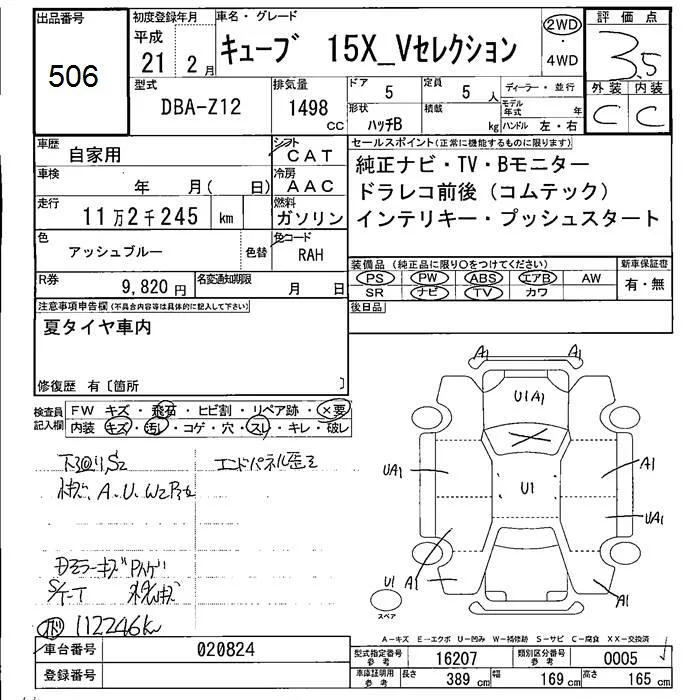 出品番号
506
初度登録年月
平成
21 2月
車名・グレード
キューブ 15X_Vセレクション
2WD
・
4WD
評価点
3.5
外装 内装
C C
型式
DBA-Z12
排気量
1498
CC
ドア
5
定員
5 人
ディーラー・並行
形状
ハッチB
積載
kg
モデル年式
年
ハンドル 左・右
車歴
自家用
シフト
CAT
車検
年 月( 日)
冷房
AAC
走行
11万2千245 km
燃料
ガソリン
色
アッシュブルー
色替
色コード
RAH
R券
9,820円
名変通知期限
月 日
セールスポイント(正常に機能するものに限ります)
純正ナビ・TV・Bモニター
ドラレコ前後(コムテック)
インテリキー・プッシュスタート
装備品(純正品に限り○をつけてください)
PS PW ABS エアB AW
SR ナビ TV カワ
新車保証書
有・無
後日品
注意事項申告欄(不具合内容等は具体的に記入して下さい)
夏タイヤ車内
修復歴 有〔箇所 〕
検査員
記入欄
FW キズ・飛石・ヒビ割・リペア跡・×要
内装 キズ・汚レ・コゲ・穴・スレ・キレ・破レ
下廻りS2
エンドパネル歪ミ
A.U.W2
112246km
A1 A1
U1A1
UA1
A1
U1
UA1
A1
U1
A1
スペア
A-キズ E-エクボ U-凹み W-補修跡 S-サビ C-腐食 XX-交換済
車台番号
020824
登録番号
型式指定番号
参考
16207
類別区分番号
参考
0005
車庫証明用
参考
長さ
389 cm
幅
169 cm
高さ
165 cm